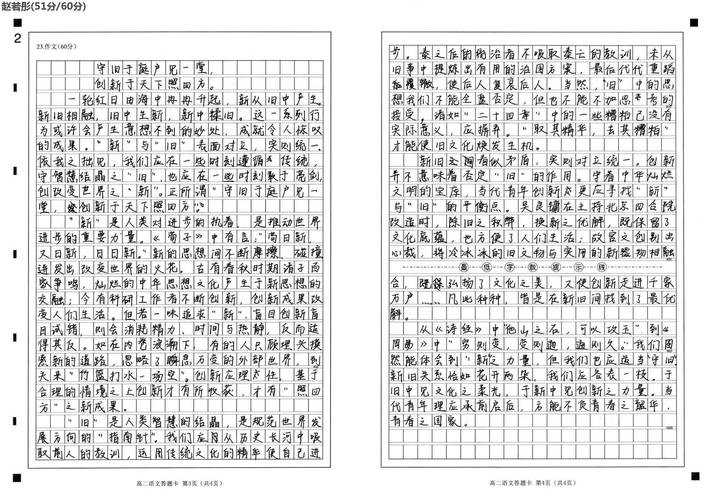 赵若彤(51分/60分)
2
23.作文(60分)
守旧于庭户见一堂,
创新于天下照四方。
一轮红日由海中冉冉升起,新从旧中产生。
新旧相融,旧中生新,新中揉旧。这一系列行
为或许会产生意想不到的妙处,成就令人惊叹
的成果。“新”与“旧”表面对立,实则统一。
依我之拙见,我们应在一些时刻遵循传统,
守智慧结晶之“旧”,也应在一些时刻敢于
创改变世界之“新”。正所谓“守旧于庭户见一
堂,创新于天下照四方”。
“新”是人类对进步的执着,是推动世界
进步的重要力量。《荀子》中有言:“苟日新,
又日新,日日新。”新的思想间不断摩擦,碰撞
迸发出改变世界的火花。古有春秋时期诸子百
家争鸣,灿烂的中华思想文化产生于新思想的
交融;今有科研工作者不断创新,创新成果改
变人们生活。但若一味追求“新”,盲目创新盲
目试错,则会消耗精力、时间与热静,反而适
得其反。如在内卷浪潮下,有的人只顾埋头摸
索新的道路,忽略了瞬息万变的外部世界,到
头来“竹篮打水一场空”。创新应理性,基于
合理的情境之上创新才有所收获,才有“照四
方”之新成果。
“旧”是人类智慧的结晶,是规范世界发
展方向的“指南针”。我们应从历史长河中吸
取前人的教训,运用传统文化的精华使自己进
高二语文答题卡 第3页(共4页)
步。秦之后的统治者不吸取秦亡的教训,未从
旧事中提炼出有用的治国方案,最后代代重蹈
覆辙,使后人复哀后人。当然,“旧”中的思
想我们不能全盘否定,但也不能不加思考的
接受。诸如“二十四孝”中的一些糟粕已没有
实际意义,应摒弃。“取其精华,去其糟粕”
才能使旧文化焕发生机。
新旧之间看似矛盾,实则对立统一。创新
并不意味着否定“旧”的作用。守着中华灿烂
文明的宝库,当代青年创新更应寻找“新”
与“旧”的平衡点。吴良镛在主持北京四合院
改造时,除旧之积弊,换新之优解,既保留了
文化底蕴,也方便了人们生活;故宫文创别出
心裁,将冷冰冰的旧文物与实用的新植物相融
最低字数提示线
合,既弘扬了文化之美,又使创新走进千家
万户……凡此种种,皆是在新旧间找到了最优
解。
从《诗经》中“他山之石,可以攻玉”到《
周易》中“穷则变,变则通,通则久。”我们固
然能体会到“新”之力量,但我们也应适当守旧。
新旧关系恰如花开两朵,我们应各表一枝。于
旧中见文化之柔光,于新中见创新之力量。当
代青年理应承前启后,方能不负青春之韶华,
青春之国家。
高二语文答题卡 第4页(共4页)